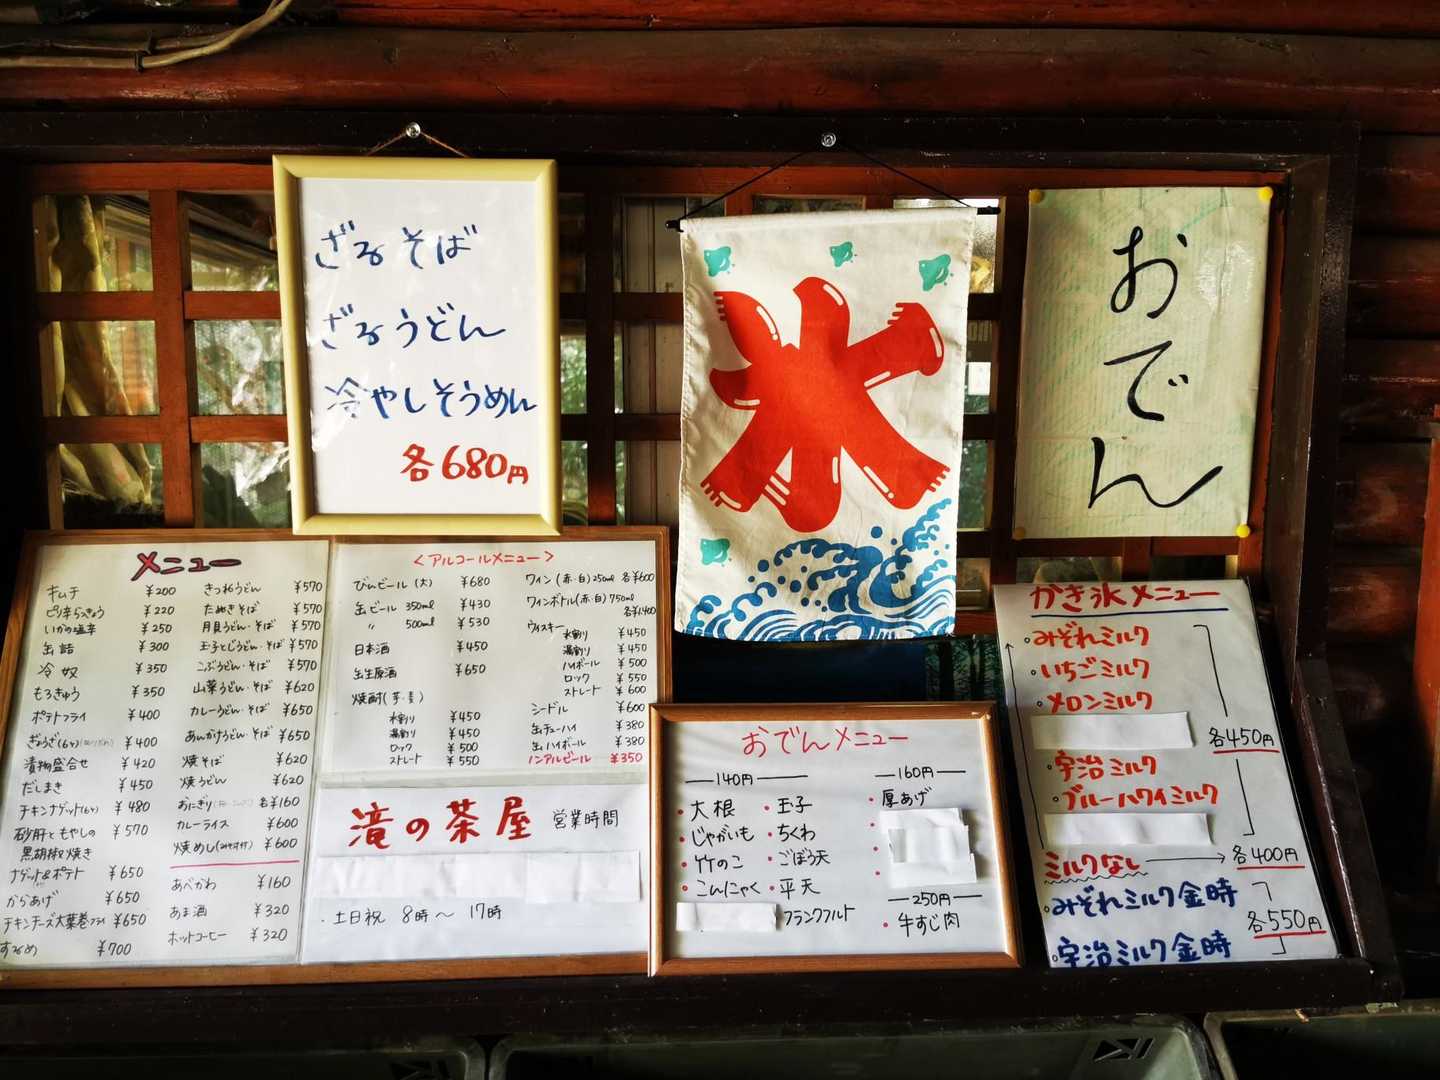 ざるそば
ざるうどん
冷やしそうめん
各680円
氷
おでん
メニュー
キムチ ¥200
ピリ辛らっきょう ¥220
いかの塩辛 ¥250
缶詰 ¥300
冷奴 ¥350
もろきゅう ¥350
ポテトフライ ¥400
ぎょうざ(6ヶ) ¥400
漬物盛合せ ¥420
だしまき ¥450
チキンナゲット(6ヶ) ¥480
砂肝ともやしの ¥570
黒胡椒焼き
ナゲット&ポテト ¥650
からあげ ¥650
チキンチーズ大葉巻フライ ¥650
するめ ¥700
きつねうどん ¥570
たぬきそば ¥570
月見うどん・そば ¥570
玉子とじうどん・そば ¥570
こぶうどん・そば ¥570
山菜うどん・そば ¥620
カレーうどん・そば ¥650
あんかけうどん・そば ¥650
焼そば ¥620
焼うどん ¥620
おにぎり 各¥160
カレーライス ¥600
焼めし(みそ汁付) ¥600
あべかわ ¥160
あま酒 ¥320
ホットコーヒー ¥320
<アルコールメニュー>
びんビール(大) ¥680
缶ビール 350ml ¥430
〃 500ml ¥530
日本酒 ¥450
缶生原酒 ¥650
焼酎(芋・麦)
水割り ¥450
湯割り ¥450
ロック ¥500
ストレート ¥550
ワイン(赤・白)250ml 各¥600
ワインボトル(赤・白)750ml
各¥1,400
ウィスキー
水割り ¥450
湯割り ¥450
ハイボール ¥500
ロック ¥550
ストレート ¥600
シードル ¥600
缶チューハイ ¥380
缶ハイボール ¥380
ノンアルビール ¥350
滝の茶屋 営業時間
・土日祝 8時～17時
おでんメニュー
140円
・大根 ・玉子
・じゃがいも ・ちくわ
・竹のこ ・ごぼう天
・こんにゃく ・平天
フランクフルト
160円
・厚あげ
250円
・牛すじ肉
かき氷メニュー
・みぞれミルク
・いちごミルク
・メロンミルク
各450円
・宇治ミルク
・ブルーハワイミルク
ミルクなし 各400円
・みぞれミルク金時
各550円
・宇治ミルク金時